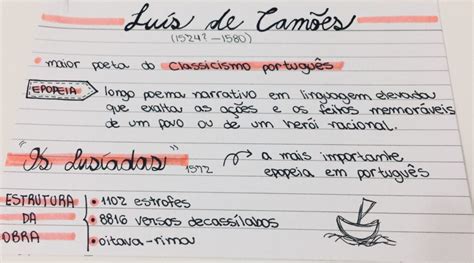 Luís de Camões
(1524? - 1580)
• maior poeta do Classicismo português
EPOPEIA longo poema narrativo em linguagem elevada
que exalta as ações e os feitos memoráveis
de um povo ou de um herói nacional.
"Os Lusíadas" 1572 → a mais importante
epopeia em português
ESTRUTURA • 1102 estrofes
DA • 8816 versos decassílabos
OBRA • oitava-rima